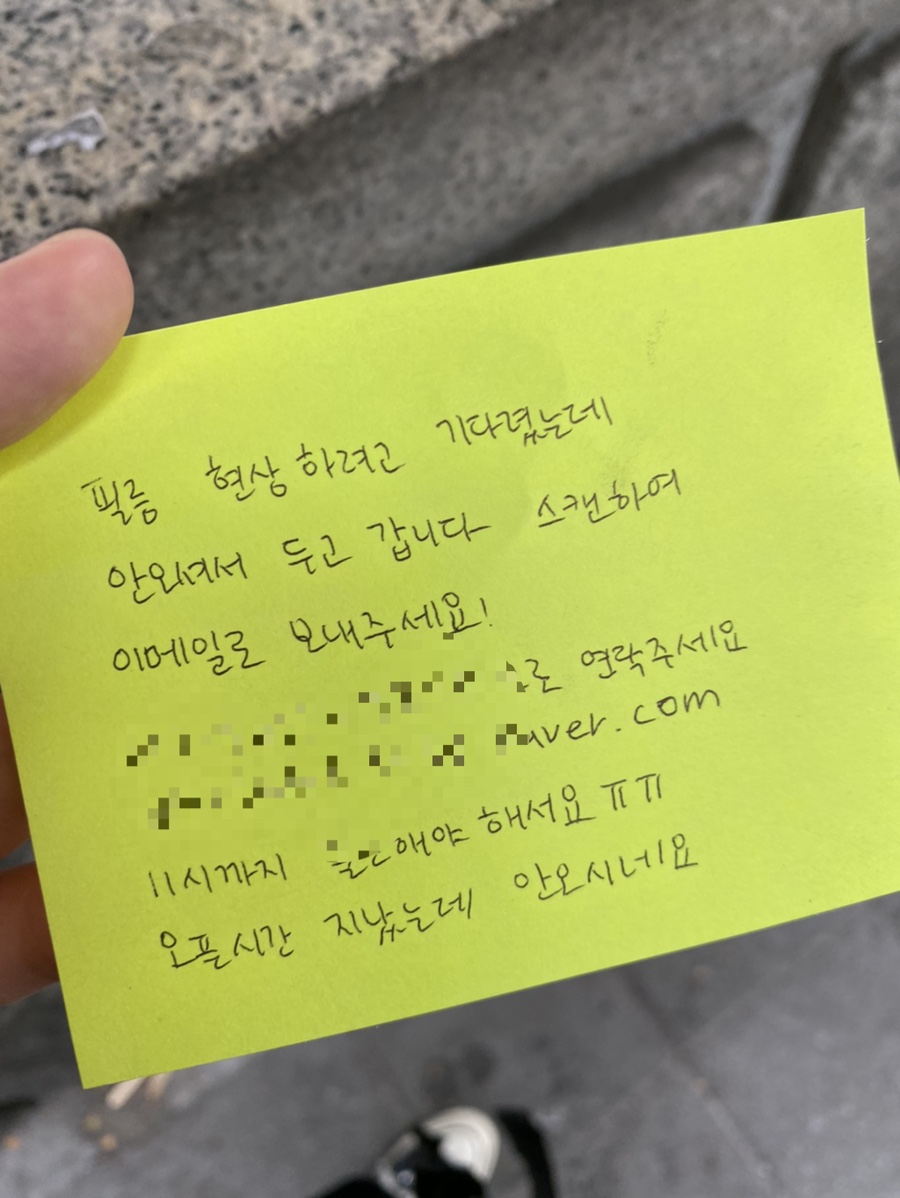 필름 현상하려고 기다렸는데
안오셔서 두고 갑니다 스캔하여
이메일로 보내주세요!
로 연락주세요
naver.com
11시까지 해야 해서요 ㅠㅠ
오픈시간 지났는데 안오시네요